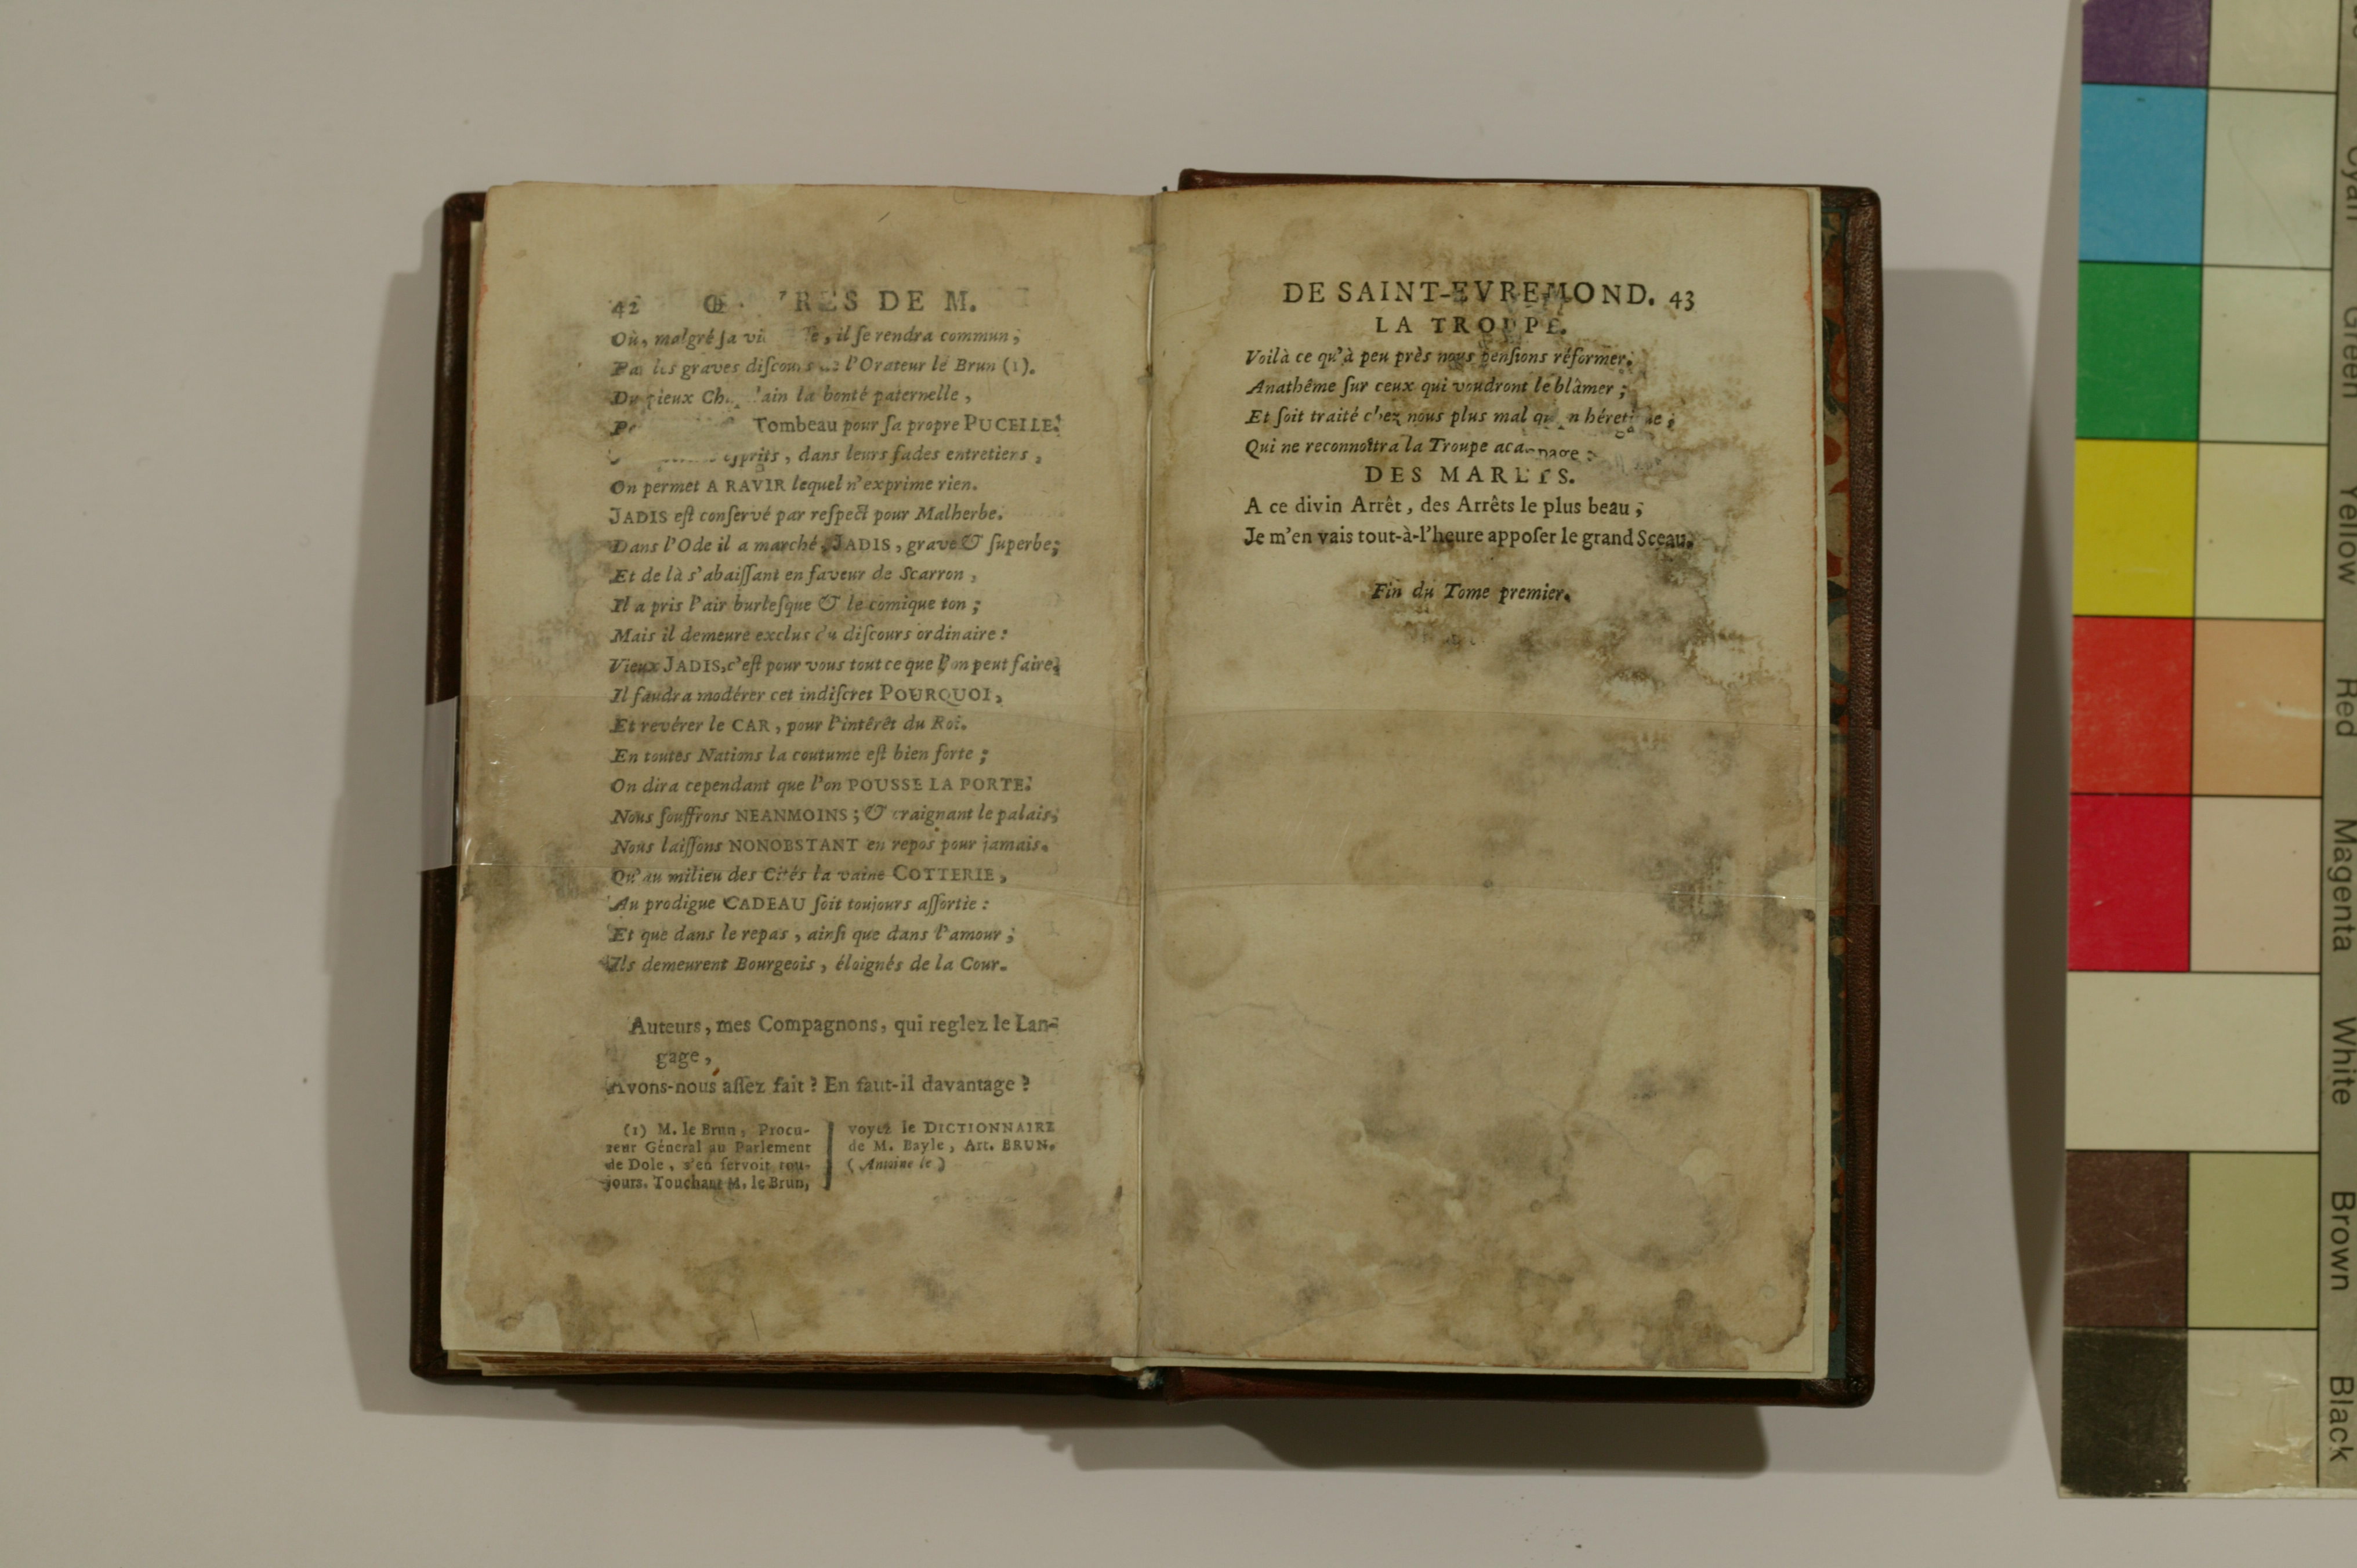 42 ŒRES DE M.
Où, malgré ſa, il ſe rendra commun;
les graves diſcours l'Orateur le Brun (1).
Du pieux la bonté paternelle,
Tombeau pour ſa propre PUCELLE.
eſprits, dans leurs fades entretiens,
On permet A RAVIR lequel n'exprime rien.
JADIS eſt conſervé par reſpect pour Malherbe.
Dans l'Ode il a marché, JADIS, grave & ſuperbe;
Et de là s'abaiſſant en faveur de Scarron,
Il a pris l'air burleſque & le comique ton;
Mais il demeure exclus du diſcours ordinaire:
Vieux JADIS, c'eſt pour vous tout ce que l'on peut faire.
Il faudra modérer cet indiſcret POURQUOI,
Et revérer le CAR, pour l'intérêt du Roi.
En toutes Nations la coutume eſt bien forte;
On dira cependant que l'on POUSSE LA PORTE.
Nous ſouffrons NEANMOINS; & craignant le palais,
Nous laiſſons NONOBSTANT en repos pour jamais.
Qu'au milieu des Cités la vaine COTTERIE,
Au prodigue CADEAU ſoit toujours aſſortie:
Et que dans le repas, ainſi que dans l'amour;
Ils demeurent Bourgeois, éloignés de la Cour.
Auteurs, mes Compagnons, qui reglez le Lan-
gage,
Avons-nous aſſez fait? En faut-il davantage?
(1) M. le Brun, Procu-
reur Géneral au Parlement
de Dole, s'en ſervoit tou-
jours. Touchant M. le Brun,
voyez le DICTIONNAIRE
de M. Bayle, Art. BRUN.
(Antoine le)
DE SAINT-EVREMOND. 43
LA TROUPE.
Voilà ce qu'à peu près nous penſions réformer.
Anathême ſur ceux qui voudront le blâmer;
Et ſoit traité chez nous plus mal
Qui ne reconnoîtra la Troupe
DES MARETS.
A ce divin Arrêt, des Arrêts le plus beau;
Je m'en vais tout-à-l'heure appoſer le grand Sceau.
Fin du Tome premier.
Cyan
Green
Yellow
Red
Magenta
White
Brown
Black